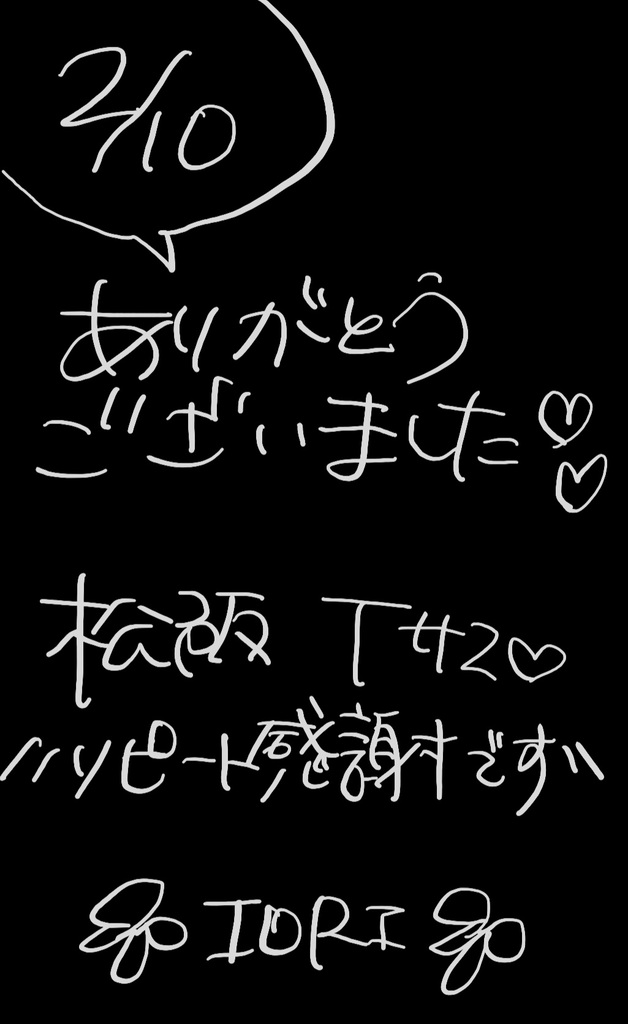 2/10
ありがとう
ございました♡♡
松阪 T42♡
〃リピート感謝です〃
IORI